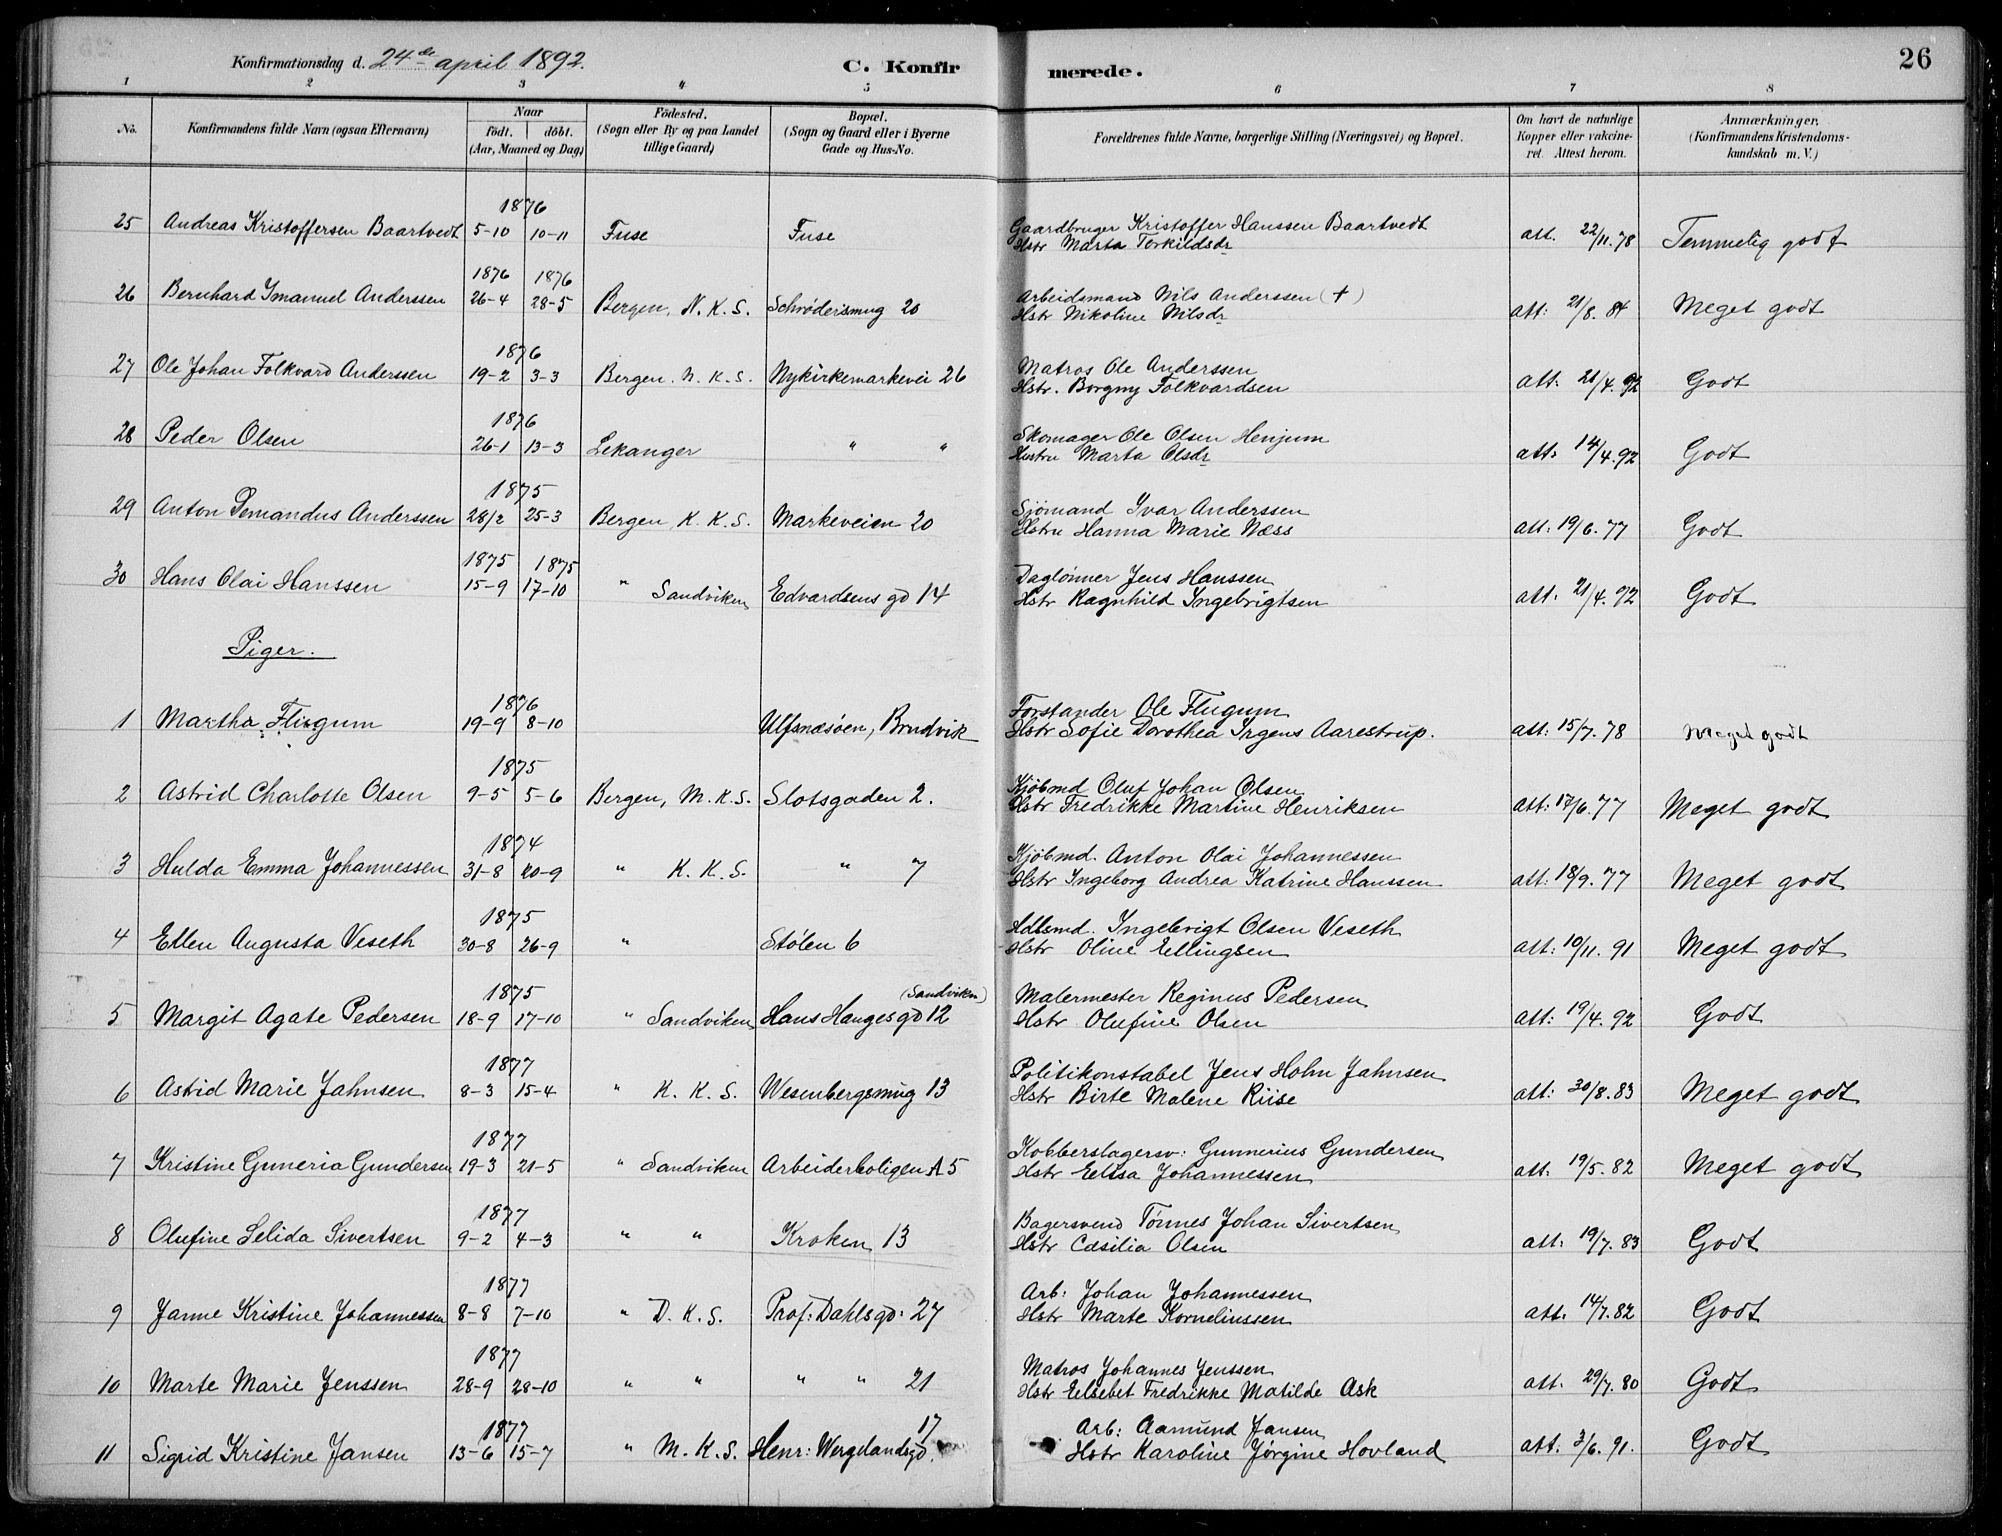 Konfirmationsdag d. 24de april 1892.
C. Konfirmerede.
26
1 2 3 4 5 6 7 8
No.
Konfirmandens fulde Navn (ogsaa Efternavn)
Naar
födt. | döbt.
(Aar, Maaned og Dag)
Födested.
(Sogn eller By og paa Landet
tillige Gaard)
Bopæl.
(Sogn og Gaard eller i Byerne
Gade og Hus-No.
Forældrenes fulde Navne, borgerlige Stilling (Næringsvei) og Bopæl.
Om havt de naturlige
Kopper eller vakcine-
ret. Attest herom.
Anmærkninger,
(Konfirmandens Kristendoms-
kundskab m. V.)
1876
25 Andreas Kristoffersen Baartvedt 5-10 10-11 Fuse Fuse Gaardbruger Kristoffer Hanssen Baartvedt att. 22/11.78 Temmelig godt
Hstr Marta Torkildsdr
1876 1876
26 Bernhard Imanuel Anderssen 26-4 28-5 Bergen, N. K. S. Schrødersmug 20 Arbeidsmand Nils Anderssen (+) att: 21/8. 84 Meget godt
Hstr Nikoline Nilsdr
1876
27 Ole Johan Folkvard Anderssen 19-2 3-3 Bergen. N. K. S. Nykirkemarkevei 26 Matros Ole Anderssen att. 21/4. 92 Godt
Hstr. Borgny Folkvardsen
1876
28 Peder Olsen 26-1 13-3 Lekanger " " Skomager Ole Olsen Henjum att. 14/4.92 Godt
Hustru Marta Olsdr
1875
29 Anton Anderssen 28/2 25-3 Bergen, K. K. S. Markeveien 20 Sjömand Ivar Anderssen att: 19/6. 77 Godt
Hstru Hanna Marie Næss
1875 1875
30 Hans Olai Hanssen 15-9 17-10 " Sandviken Edvardsens gd 14 Daglønner Jens Hanssen att. 21/4. 92 Godt
Hstr Ragnhild Ingebrigtsen
Piger.
1876
1 Martha Flugum 19-9 8-10 Ulfsnæsøen, Brudvik Forstander Ole Flugum att: 15/7. 78 Meget godt
Hstr Sofie Dorothea Irgens Aarestrup.
1875
2 Astrid Charlotte Olsen 9-5 5-6 Bergen, M. K. S. Slotsgaden 2. Kjöbmd Oluf Johan Olsen att: 17/6. 77 Meget godt
Hstr Fredrikke Martine Henriksen
1874
3 Hulda Emma Johannessen 31-8 20-9 " K. K. S. " 7 Kjöbmd. Anton Olai Johannessen att: 18/9. 77 Meget godt
Hstr Ingeborg Andrea Katrine Hanssen
1875
4 Ellen Augusta Veseth 30-8 26-9 " Stølen 6 Hdlsmd. Ingebrigt Olsen Veseth att: 10/11. 91 Meget godt
Hstr Oline Ellingsen
1875 (Sandviken)
5 Margit Agate Pedersen 18-9 17-10 " Sandviken Hans Hauges gd 12 Malermester Reginus Pedersen att: 19/4. 92 Godt
Hstr Olufine Olsen
1877
6 Astrid Marie Jahnsen 8-3 15-4 " K. K. S. Wesenbergsmug 13 Politikonstabel Jens Holm Jahnsen att: 30/8. 83 Meget godt
Hstr Birte Malene Riise
1877
7 Kristine Guneria Gundersen 19-3 21-5 " Sandviken Arbeiderboligen A 5 Kobberslagersv: Gunnerius Gundersen att. 19/5. 82 Meget godt
Hstr Ellsa Johannessen
1877
8 Olufine Selida Sivertsen 9-2 4-3 " " Kroken 13 Bagersvend Tönnes Johan Sivertsen att: 19/7. 83 Godt
Hstr Cæsilia Olsen
1877
9 Janne Kristine Johannessen 8-8 7-10 " D. K. S. Prof: Dahlsgd: 27 Arb: Johan Johannessen att. 14/7.82 Godt
Hstr Marte Korneliussen
1877
10 Marte Marie Jenssen 28-9 28-10 " " " " 21 Matros Johannes Jenssen att. 29/7. 80 Godt
Hstr Ellsebet Fredrikke Matilde Ask
1877 17
11 Sigrid Kristine Jansen 13-6 15-7 " M. K. S. Henr: Wergelandsgd. Arb: Aamund Jansen att. 3/6. 91. Godt
Hstr Karoline Jørgine Hovland